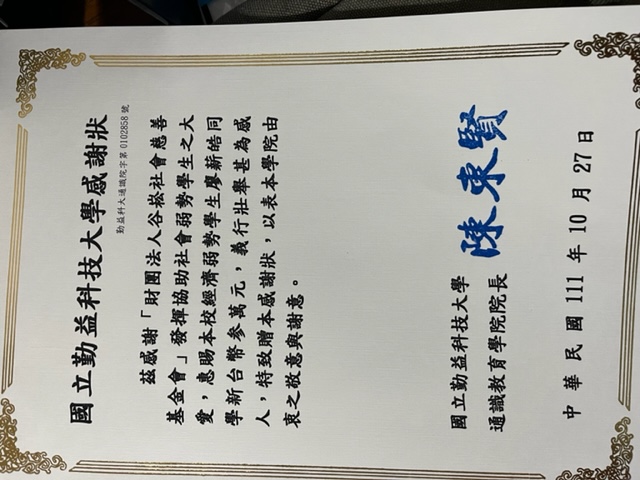 國立勤益科技大學感謝狀
勤益科大通識院字第 0102858 號
茲感謝「財團法人谷崧社會慈善
基金會」發揮協助社會弱勢學生之大
愛，惠賜本校經濟弱勢學生廖薪皓同
學新台幣參萬元，義行壯舉甚為感
人，特致贈本感謝狀，以表本學院由
衷之敬意與謝意。
國立勤益科技大學
通識教育學院院長 陳東賢
中華民國 111 年 10 月 27 日